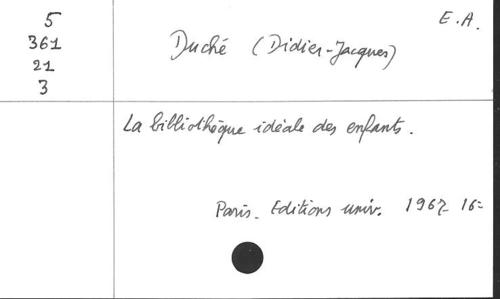 5
361
21
3
E.A.
Duché (Didier-Jacques)
La bibliothèque idéale des enfants.
Paris. Editions univ. 1967 16=